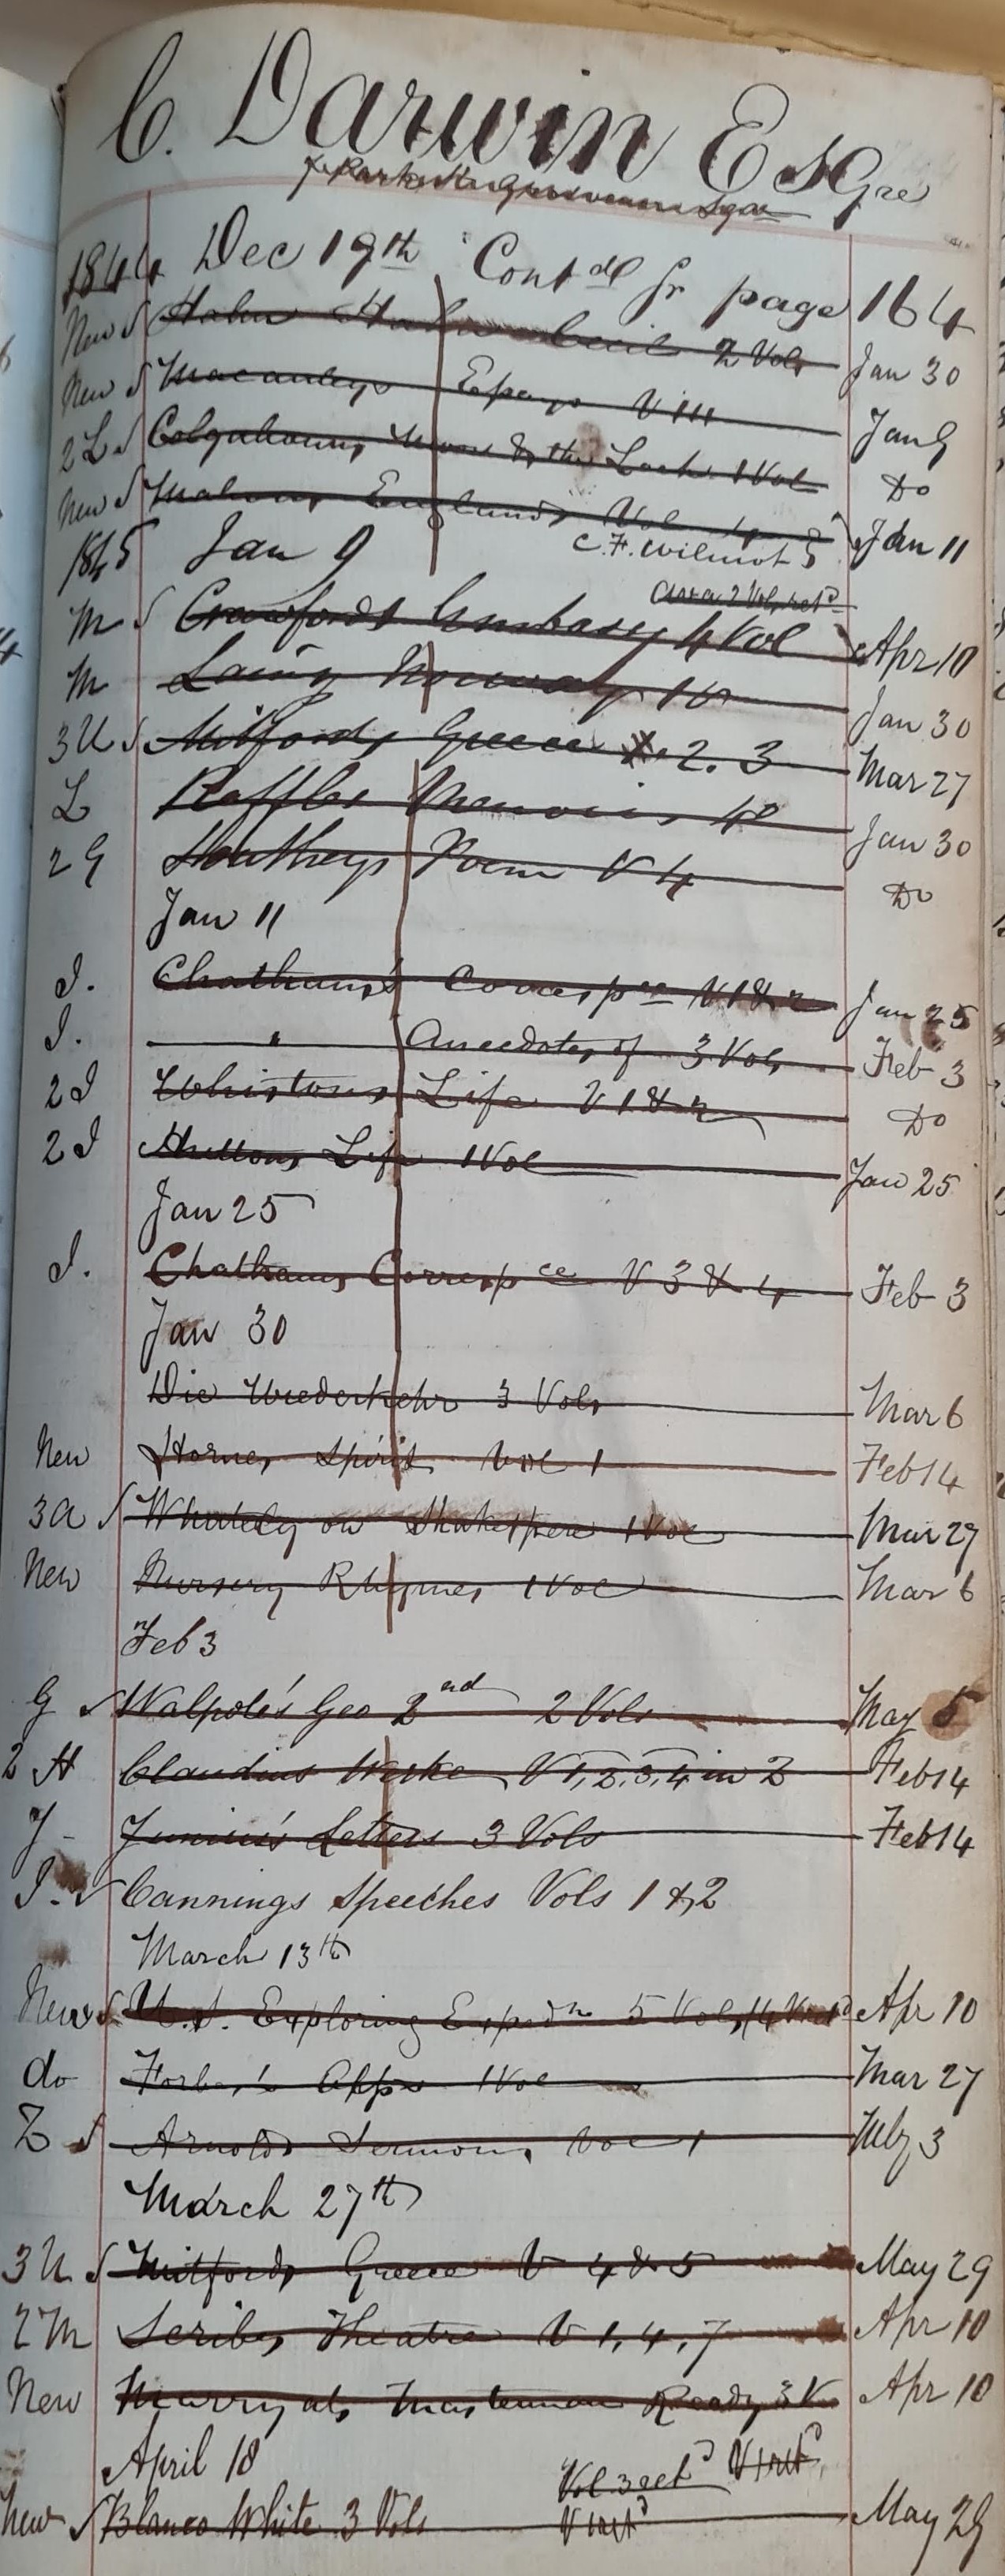 C. Darwin Esqre
1844 Dec 19th Contd fr page 164
New Hahn Hahn Cecil 2 Vols Jan 30
New Macauleys Essays V III Jan 9
2L Colquhouns Moor & the Loch 1 Vol Do
New Mahons England Vol 4 Jan 11
1845 Jan 9 C.F. Wilmot
2 Vols retd
M Crawfords Embassy 4 Vol Apr 10
M Laing Norway 1 V Jan 30
3U Mitfords Greece 2. 3 Mar 27
L Raffles Memoirs Jan 30
2G Southeys Poem V 4 Do
Jan 11
I. Chatham's Correspce V 1 & 2 Jan 25
I. " Anecdotes of 3 Vols Feb 3
2I Whistons Life V 1 & 2 Do
2I Huttons Life 1 Vol Jan 25
Jan 25
I. Chathams Correspce V 3 & 4 Feb 3
Jan 30
Die Wiederkehr 3 Vols Mar 6
New Hornes Spirit Vol 1 Feb 14
3a Whately on Shakespere 1 Vol Mar 27
New Nursery Rhymes 1 Vol Mar 6
Feb 3
G Walpole's Geo 2nd 2 Vols May 5
2 H Claudius Werke V 1, 2, 3, 4 in 2 Feb 14
J Junius's Letters 3 Vols Feb 14
I. Cannings Speeches Vols 1 & 2
March 13th
New U.S. Exploring Expedn 5 Vols Apr 10
do Forbes's Alps 1 Vol Mar 27
Z Arnolds Sermons Vol 1 July 3
March 27th
3U Mitfords Greece V 4 & 5 May 29
2M Scribes Theatre V 1, 4, 7 Apr 10
New Marryats Masterman Ready 3 V Apr 10
April 18 Vol 3 retd V 1 retd
New Blanco White 3 Vols V 1 retd May 29